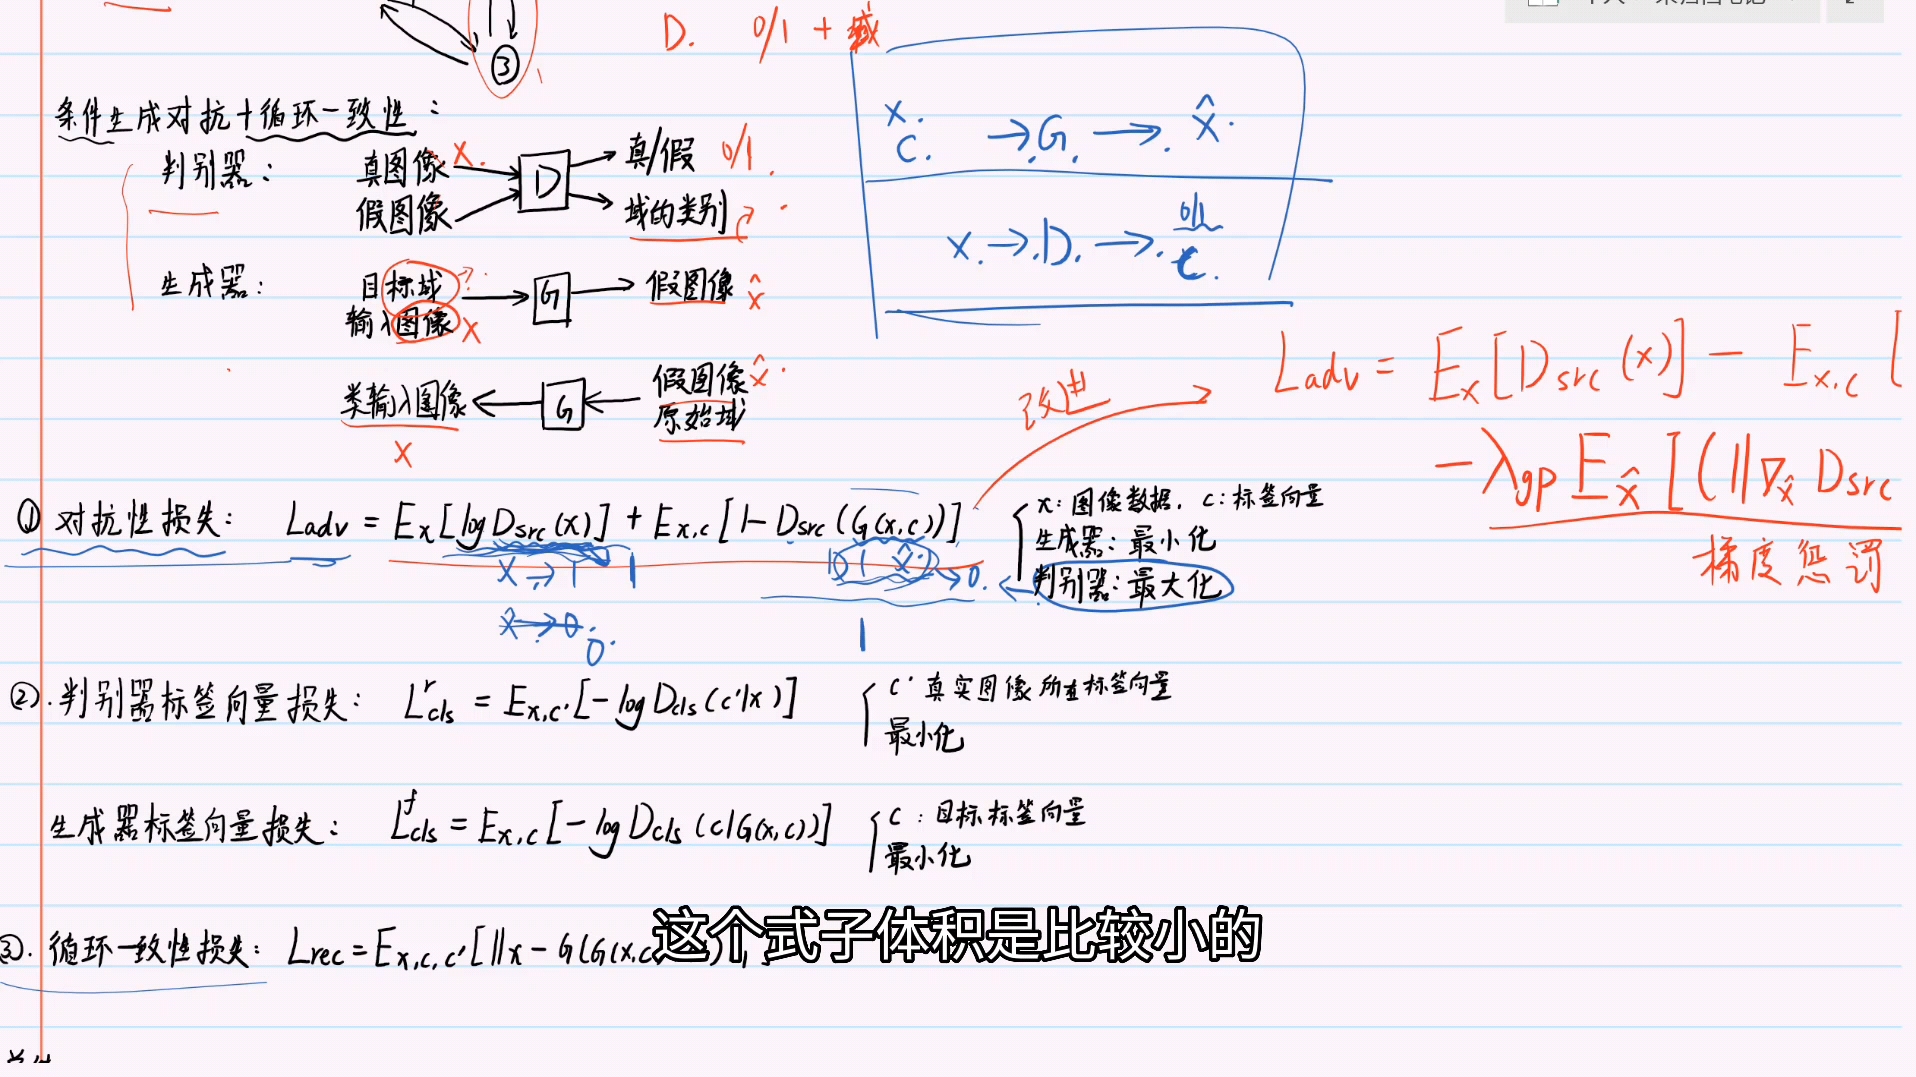 ③
D. 0/1 + 域
条件生成对抗+循环一致性：
x. c. → G. → x̂.
判别器： 真图像 x. → D → 真/假 0/1
假图像 域的类别
x. → D. → 0/1 c.
生成器： 目标域 → G → 假图像 x̂
输入图像 x
类输入图像 ← G ← 假图像 x̂
x 原始域
改进
Ladv = Ex[Dsrc(x)] − Ex,c [
−λgp Ex̂ [(‖∇x̂ Dsrc
梯度惩罚
① 对抗性损失： Ladv = Ex[logDsrc(x)] + Ex,c[1-Dsrc(G(x,c))]
x：图像数据，c：标签向量
生成器：最小化
判别器：最大化
x → 1 1
x̂ → 0. →0.
0. 1
②. 判别器标签向量损失： Lʳcls = Ex,c'[−logDcls(c'|x)]
c' 真实图像所在标签向量
最小化
生成器标签向量损失： Lᶠcls = Ex,c[−logDcls(c|G(x,c))]
c：目标标签向量
最小化
③. 循环一致性损失： Lrec = Ex,c,c'[‖x − G(G(x,c
这个式子体积是比较小的